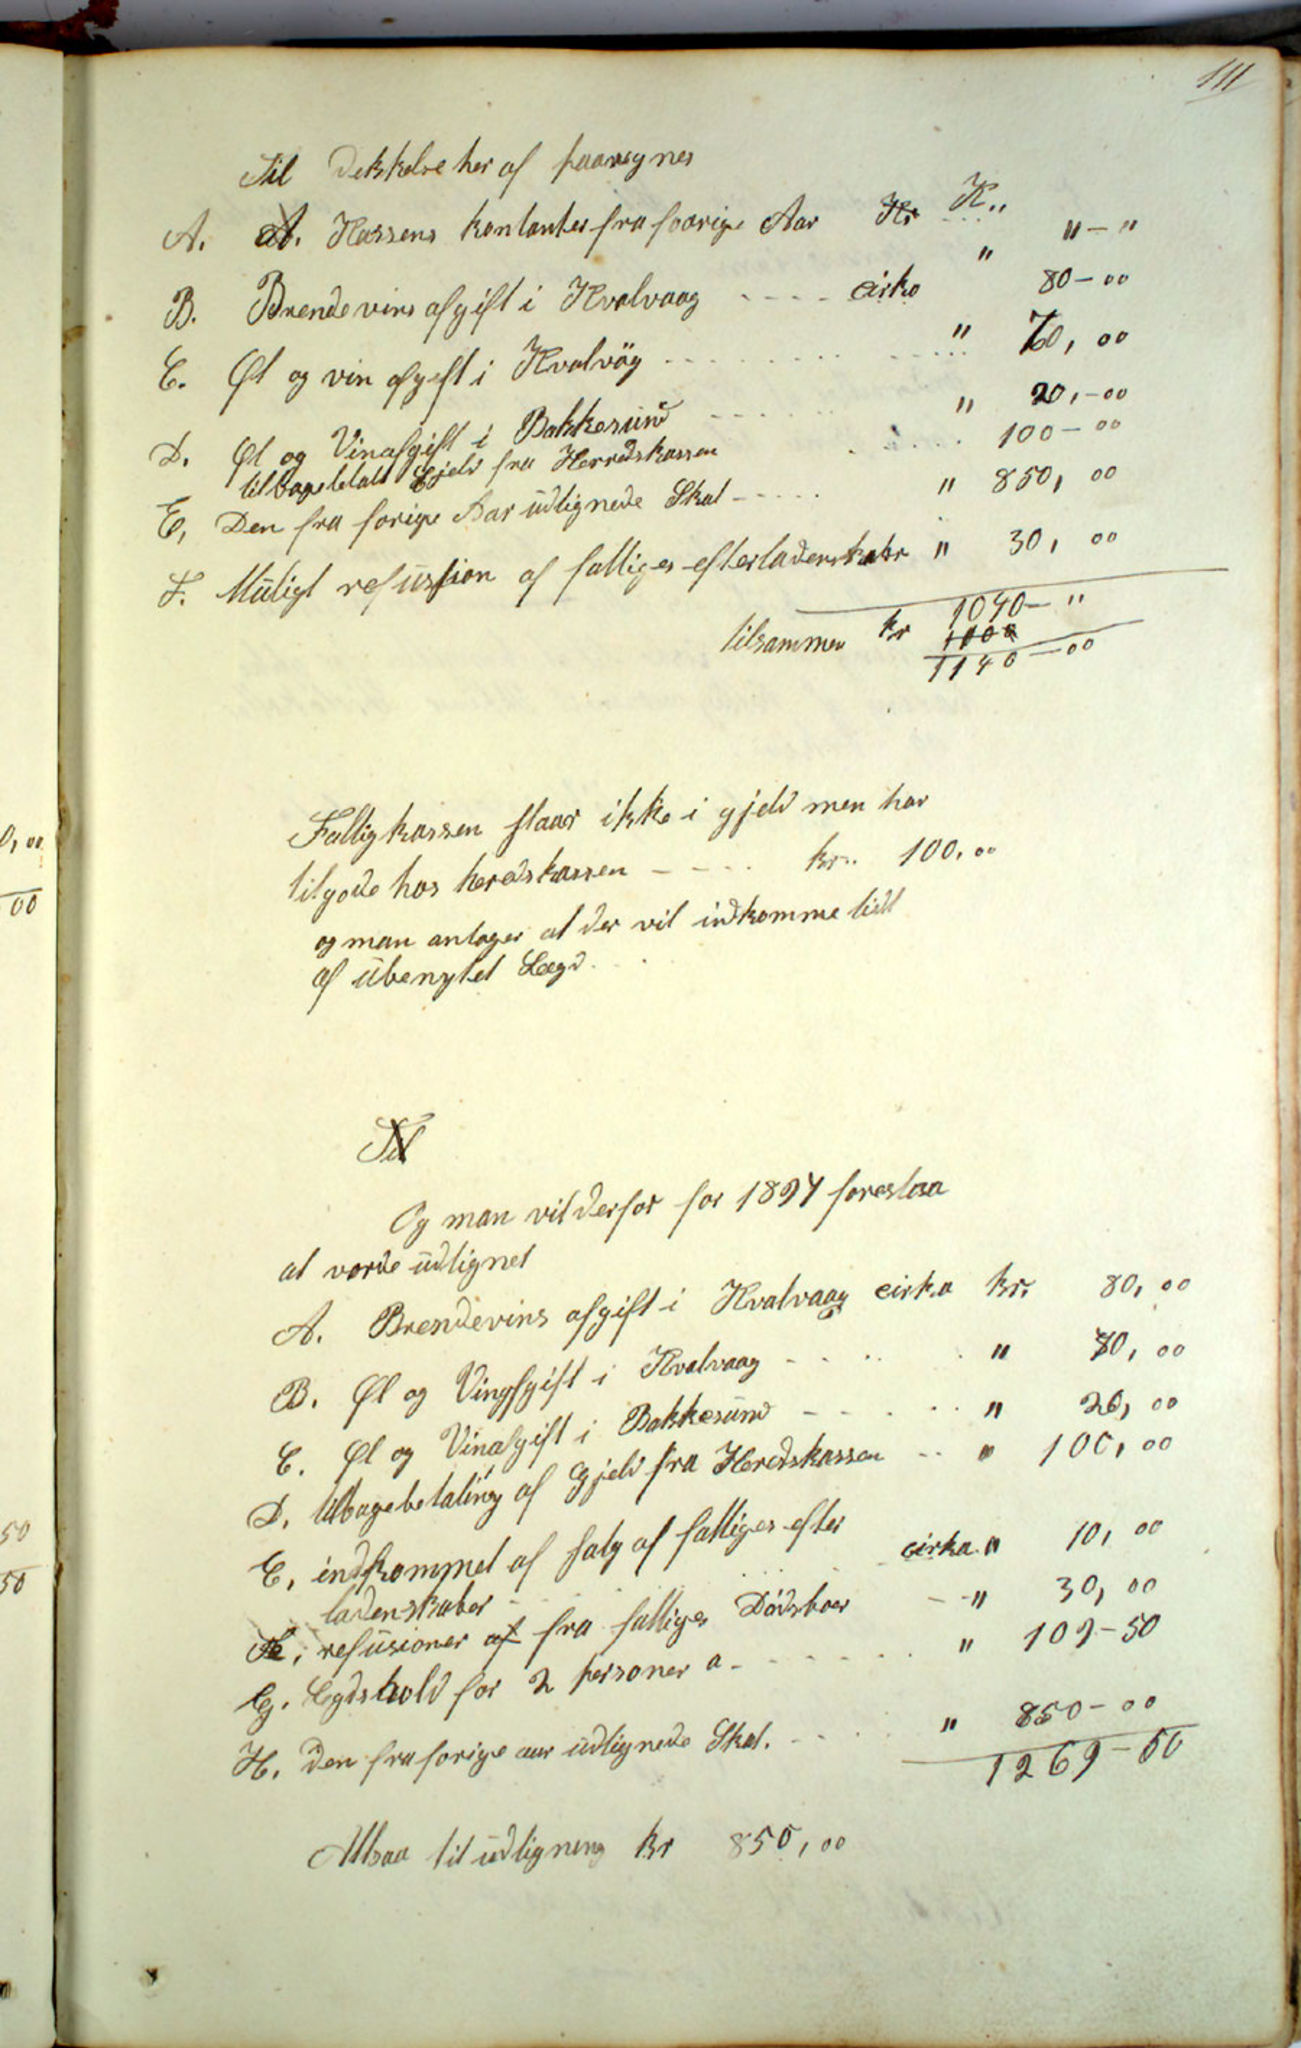 111
Til Dekkelse her af paaregnes
A. A. Kassens kontanter fra forrige Aar Kr K.. " - "
B. Brendevins afgift i Kvalvaag - - - - cirka " 80 - 00
C. Øl og vin afgift i Kvalvåg - - - - " 70, 00
D. Øl og Vinafgift i Bakkesund - - - " 20, - 00
tilbagebetalt Gjeld fra Herredskassen 100 - 00
E, Den fra forige Aar udlignede Skat - - - - " 850, 00
F. Muligt refussion af fattiges efterladenskaber " 30, 00
1040 - "
tilsammen kr 1000
1140 - 00
Fattigkassen staar ikke i gjeld men har
tilgode hos heredskassen - - - - kr.. 100,00
og man antager at der vil indkomme lidt
af ubenyttet Lægd
Til
Og man vil derfor for 1897 foreslaa
at vorde udlignet
A. Brendevins afgift i Kvalvaag cirka kr. 80, 00
B. Øl og Vinafgift i Kvalvaag - - - " 70, 00
C. Øl og Vinafgift i Bakkesund - - - " 20, 00
D. tilbagebetaling af Gjeld fra Heredskassen - - " 100, 00
E, indkommet af salg af fattiges efter
ladenskaber - cirka " 10, 00
F, refusioner af fra fattiges Dødsboer - - " 30, 00
G. Legdshold for 2 personer a - - - - - " 109 - 50
H. den fra forige aar udlignede Skat. - - - " 850 - 00
1269 - 50
Altsaa til udligning kr 850, 00
0,00
00
50
50